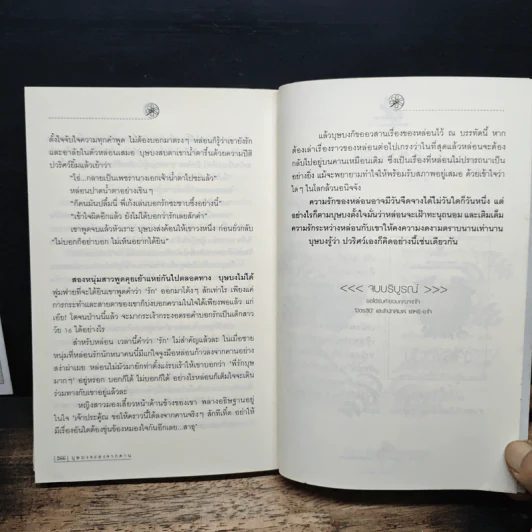 ตั้งใจจับใจความทุกคำพูด ไม่ต้องบอกมาตรงๆ หล่อนก็รู้ว่าเขายังรัก
และอาลัยในตัวหล่อนเสมอ บุษบงสบตาเขาน้ำตารื้นด้วยความปีติ
ปวริศร์ยิ้มแล้วเย้าว่า
“โธ่...กลายเป็นเพชรานางเอกเจ้าน้ำตาไปซะแล้ว”
หล่อนปาดน้ำตาอย่างเขินๆ
“ก็คนมันปลื้มนี่ พี่เก้งเล่นบอกรักซะซาบซึ้งอย่างนี้”
“เข้าใจผิดอีกแล้ว ยังไม่ได้บอกว่ารักเลยสักคำ”
เขาพูดจบแล้วหัวเราะ บุษบงส่งค้อนให้เขาวงหนึ่ง ก่อนยั่วกลับ
“ไม่บอกก็อย่าบอก ไม่เห็นอยากได้ยิน”
สองหนุ่มสาวพูดคุยเย้าแหย่กันไปตลอดทาง บุษบงไม่ได้
ฟูมฟายที่จะได้ยินเขาพูดคำว่า “รัก” ออกมาโต้งๆ สักเท่าไร เพียงแค่
การกระทำและสายตาของเขาก็บ่งบอกความในใจได้เพียงพอแล้ว แก่
เฒ่าโดนป่านนี้แล้ว จะมากระเง้ากระงอดรอคำบอกรักเป็นเด็กสาว
วัย 16 ได้อย่างไร
สำหรับหล่อน เวลานี้คำว่า ‘รัก’ ไม่สำคัญแล้วละ ในเมื่อชาย
หนุ่มที่หล่อนรักนักหนาคนนี้มีแก่ใจจูงมือหล่อนก้าวลงจากคานอย่าง
สง่าผ่าเผย หล่อนไม่มัวมายักท่าตั้งแง่รบเร้าให้เขาบอกว่า “พี่รักบุษ
มากๆ” อยู่หรอก บอกก็ได้ ไม่บอกก็ได้ อย่างไรหล่อนก็เต็มใจจะเดิน
ร่วมทางกับเขาอยู่แล้วละ
หญิงสาวมองเสี้ยวหน้าด้านข้างของเขา พลางอธิษฐานอยู่
ในใจ “เจ้าประคู้ณ ขอให้คราวนี้ได้ลงจากคานจริงๆ สักทีเถิด อย่าให้
มีเรื่องอันใดต้องขุ่นข้องหมองใจกันอีกเลย...สาธุ”
366
แล้วบุษบงก็ขออวสานเรื่องของหล่อนไว้ ณ บรรทัดนี้ หาก
ต้องเล่าเรื่องราวของหล่อนต่อไปเกรงว่าในที่สุดแล้วหล่อนจะต้อง
กลับไปอยู่บนคานเหมือนเดิม ซึ่งเป็นเรื่องที่หล่อนไม่ปรารถนาเป็น
อย่างยิ่ง แม้จะพยายามทำใจให้พร้อมรับสภาพอยู่เสมอ ด้วยเข้าใจว่า
ใดๆ ในโลกล้วนอนิจจัง
ความรักของหล่อนอาจมีวันจืดจางได้ไม่วันใดก็วันหนึ่ง แต่
อย่างไรก็ตามบุษบงตั้งใจมั่นว่าหล่อนจะเฝ้าทะนุถนอม และเติมเต็ม
ความรักระหว่างหล่อนกับเขาให้คงความงดงามตราบนานเท่านาน
บุษบงรู้ว่า ปวริศร์เองก็คิดอย่างนี้เช่นเดียวกัน
<<< จบบริบูรณ์ >>>